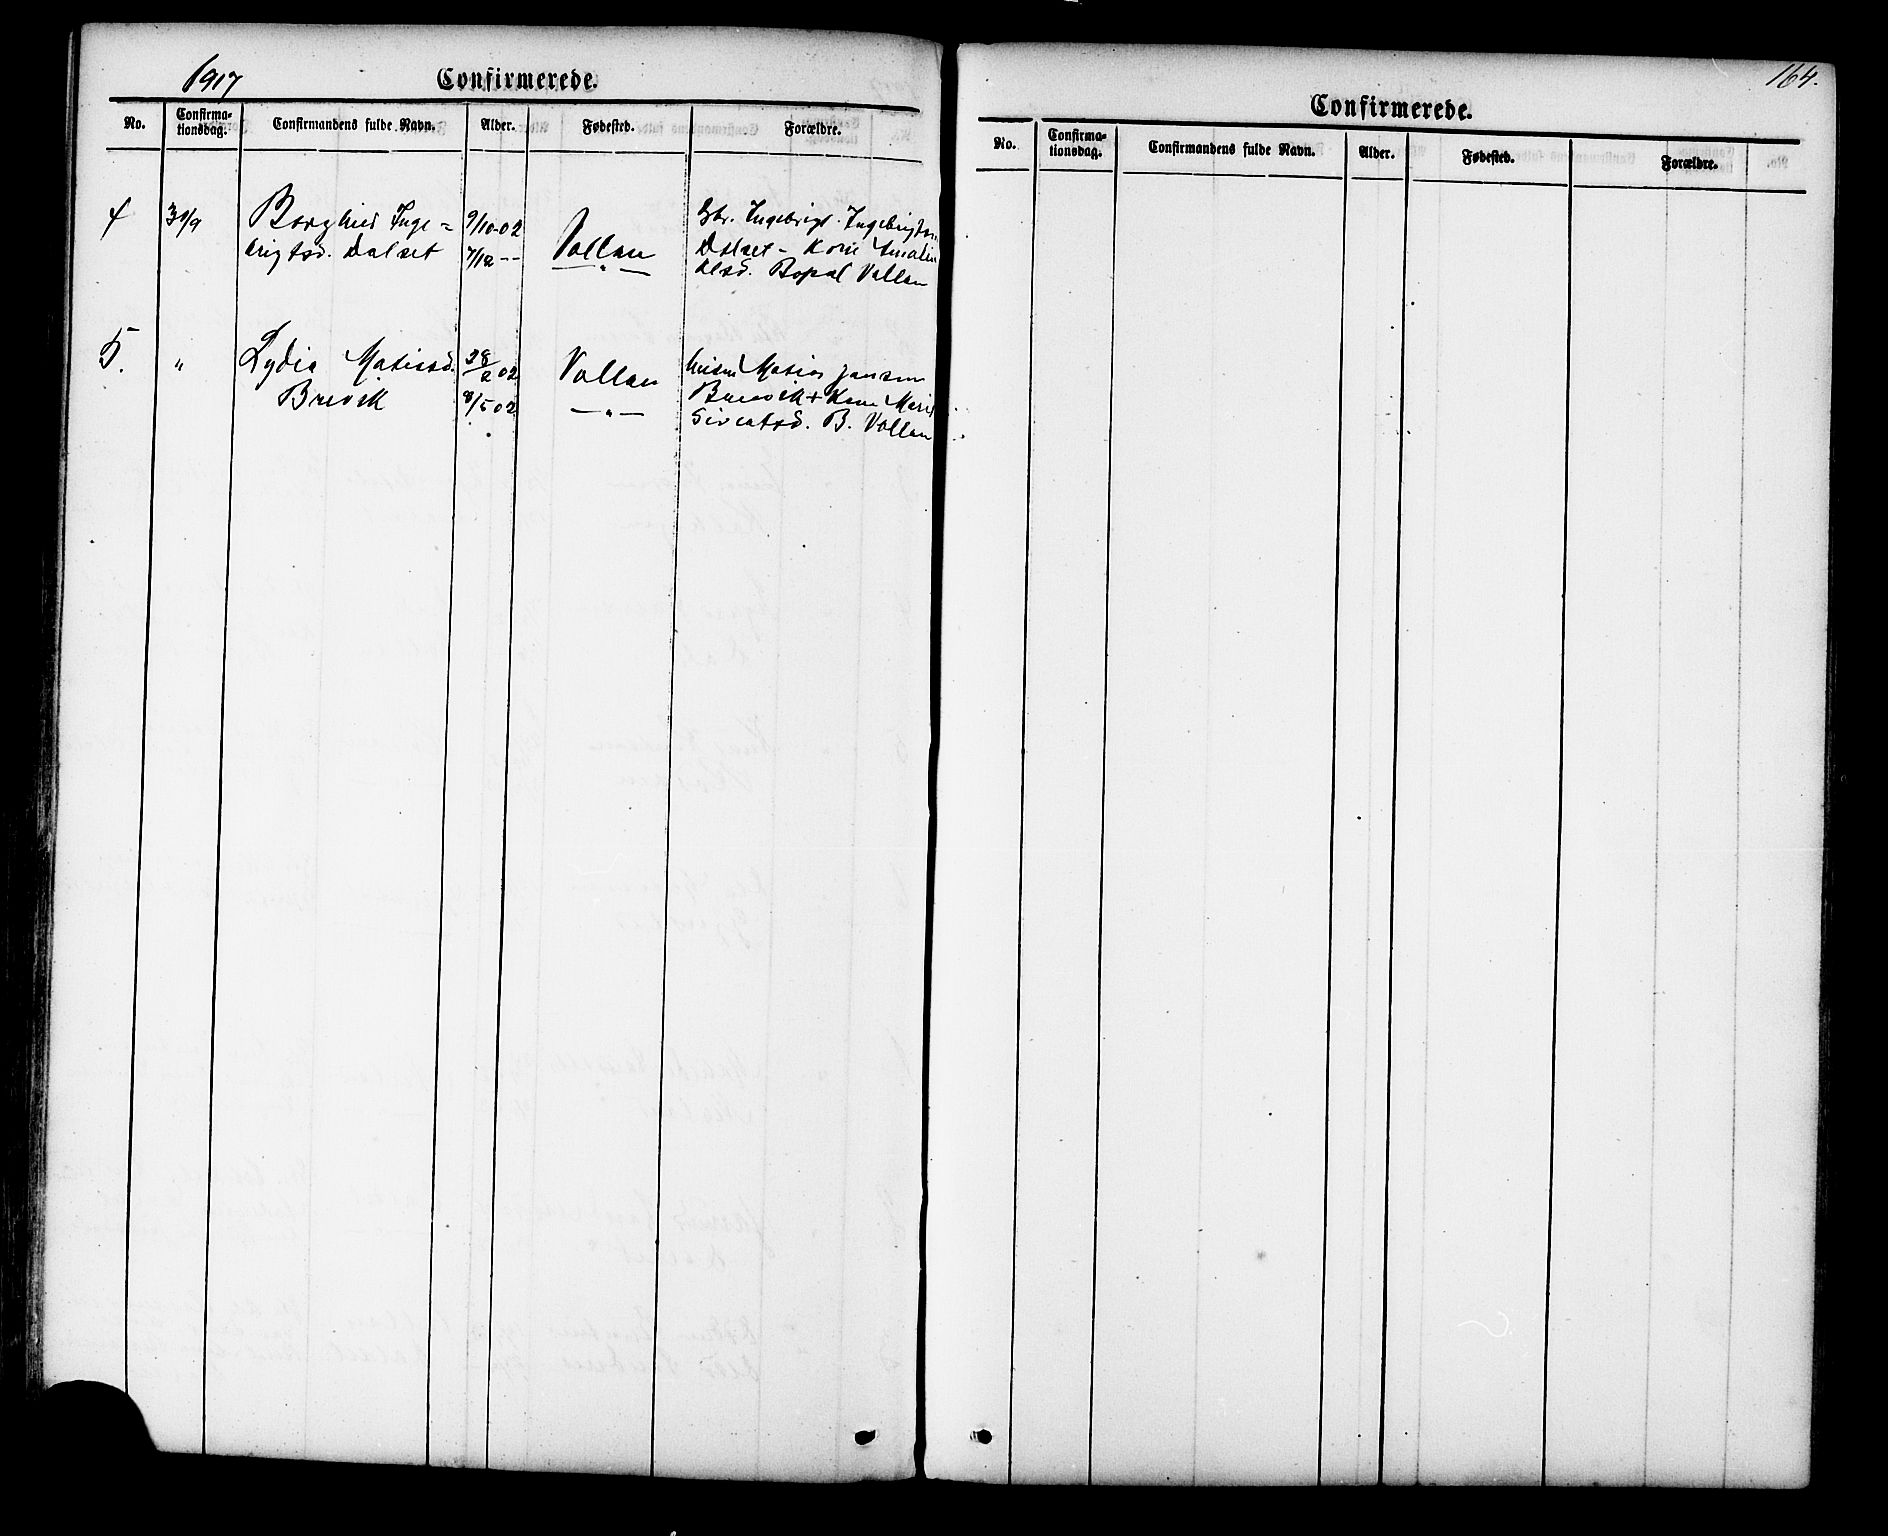 1917
Confirmerede.
No. Confirma-
tionsdag. Confirmandens fulde Navn. Alder. Fødested. Forældre.
4 30/9 Borghild Inge=
brigtsd. Dalset
9/10-02
7/12 --
Vollan
— " —
Gbr. Ingebrigt Ingebrigtsen
Dalset -
Olsd. Vollan
5. " Lydia Matiasd.
Brevik
28/2 02
8/5 02
Vollan
— " —
Matias Jansen
Brevik +
Sivertsd. B. Vollan
164.
Confirmerede.
No. Confirma-
tionsdag. Confirmandens fulde Navn. Alder. Fødested. Forældre.